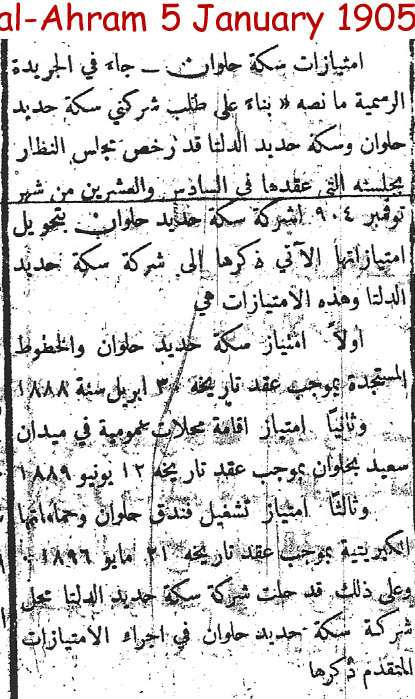 al-Ahram 5 January 1905
امتيازات سكة حلوان — جاء في الجريدة
الرسمية ما نصه « بناءً على طلب شركتي سكة حديد
حلوان وسكة حديد الدلتا قد رخص مجلس النظار
بجلسته التي عقدها في السادس والعشرين من شهر
نوفمبر ٩٠٤ لشركة سكة حديد حلوان بتحويل
امتيازاتها الآتي ذكرها الى شركة سكة حديد
الدلتا وهذه الامتيازات هي
اولاً امتياز سكة حديد حلوان والخطوط
المستجدة بموجب عقد تاريخه ٣٠ ابريل سنة ١٨٨٨
وثانيًا امتياز اقامة محلات عمومية في ميدان
سعيد بحلوان بموجب عقد تاريخه ١٢ يونيو ١٨٨٩
وثالثًا امتياز تشغيل فندق حلوان وحماماتها
الكبريتية بموجب عقد تاريخه ٢١ مايو ١٨٩٦
وعلى ذلك قد حلت شركة سكة حديد الدلتا محل
شركة سكة حديد حلوان في اجراء الامتيازات
المتقدم ذكرها